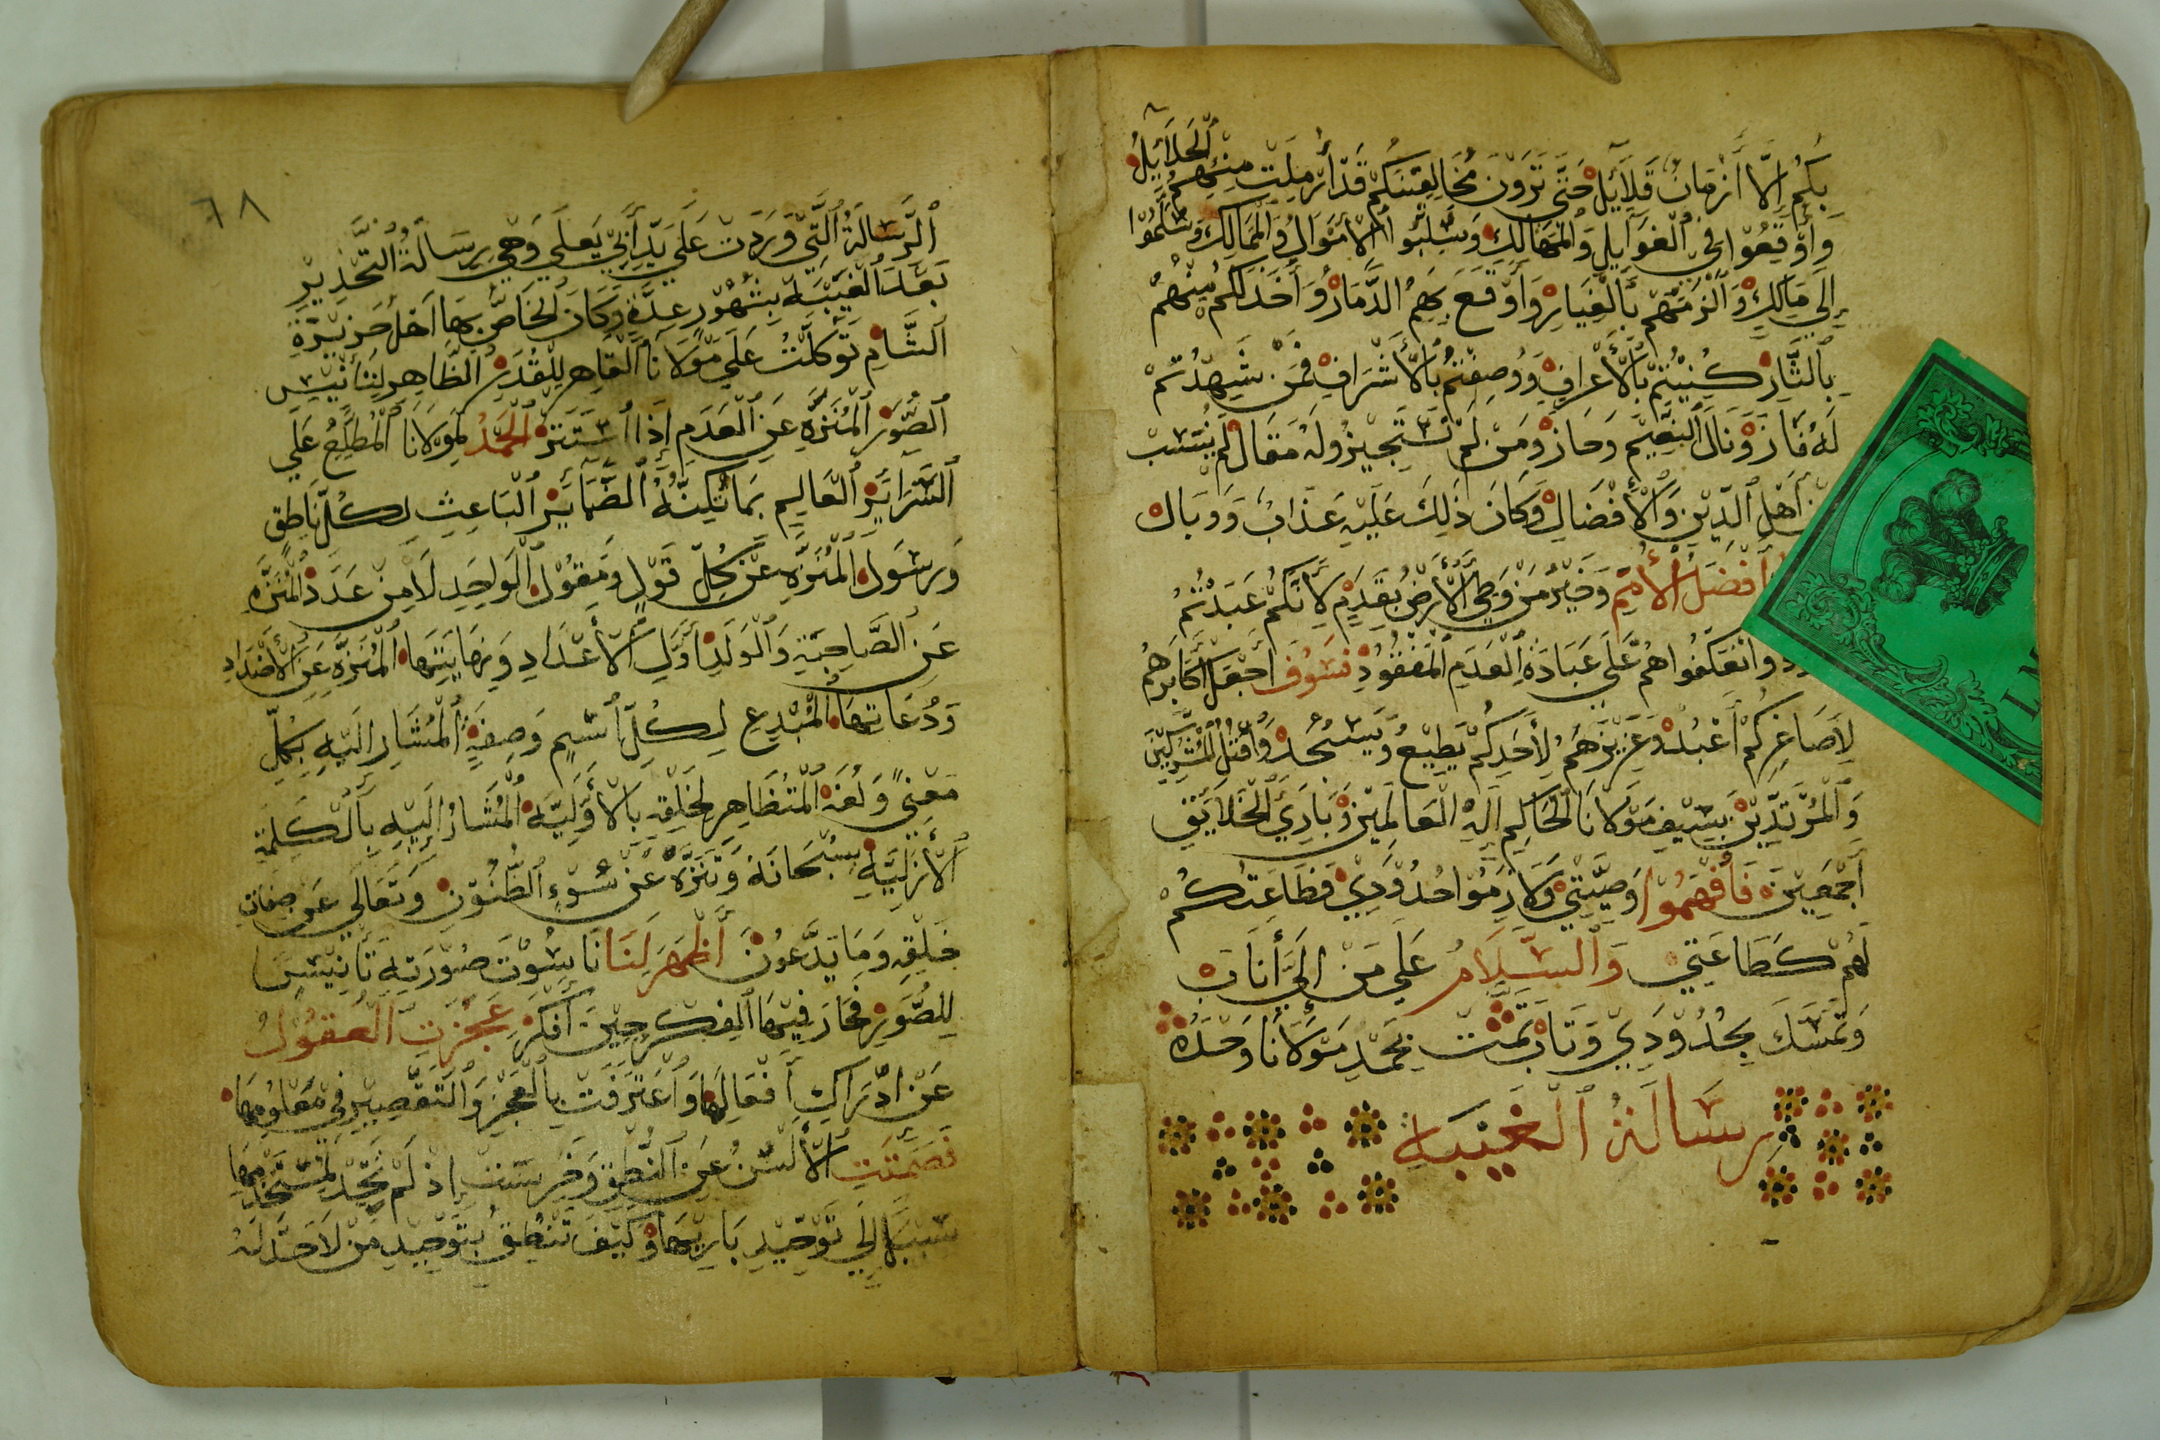 بكم إلا أزمان قلايل حتى ترون مخالفينكم قد أرملت منهم الحلايل
وأوقعوا في الغوايل والمهالك وسلبوا الأموال والممالك وسلموا
إلى مالك وألزمهم بالغيار وأوقع بهم الدمار وأخذ لكم منهم
بالثار كنيتم بالأعراف ووصفتم بالأشراف فمن شهدتم
له فاز ونال النعيم وحاز ومن لم تستجيزوله مقال لم ينتسب
أهل الدين والأفضال وكان ذلك عليه عذاب ووبال
أفضل الأمم وخير من وطي الأرض بقدم لأنكم عبدتم
وانعكفوا هم على عبادة العدم المفقود فسوف أجعل أكابرهم
لأصاغركم أعبد وعزيزهم لأحدكم يطيع ويسجد وأقتل المشركين
والمرتدين بسيف مولانا الحاكم اله العالمين وباري الخلايق
أجمعين فافهموا وصيتي ولازموا حدودي فطاعتكم
لهم كطاعتي والسلام على من إلي أناب
وتمسك بحدودي وتاب تمت بحمد مولانا وحده
رسالة الغيبة
٦٨
الرسالة التي وردت على يد أبي يعلى وهي رسالة التحذير
بعد الغيبة بشهور عدة وكان الخاص بها أهل جزيرة
الشام توكلت على مولانا القاهر للقدر الظاهر لتأنيس
الصور المنزه عن العدم إذا استتر الحمد لمولانا المطلع على
السراير العالم بما تكنه الضماير الباعث لكل ناطق
ورسول المنزه عن كل قول ومقول الواحد لا من عدد المنزه
عن الصاحبة والولد أول الأعداد ونهايتها المنزه عن الأضداد
ودعاتها المبدع لكل أسم وصفة المشار اليه بكل
معنى ولغة المتظاهر لخلقه بالأولية المشار إليه بالكلمة
الأزلية سبحانه وتنزه عن سوء الظنون وتعالى عن صفات
خلقه وما يدعون أظهر لنا ناسوت صورته تأنيس
للصور فحار فيها الفكر حين أفكر عجزت العقول
عن ادراك أفعالها واعترفت بالعجز والتقصير في معلومها
فصمتت الألسن عن النطق وخرست إذ لم تجد لمستخدمها
سببا إلى توحيد باريها وكيف تنطق بتوحيد من لا حد له